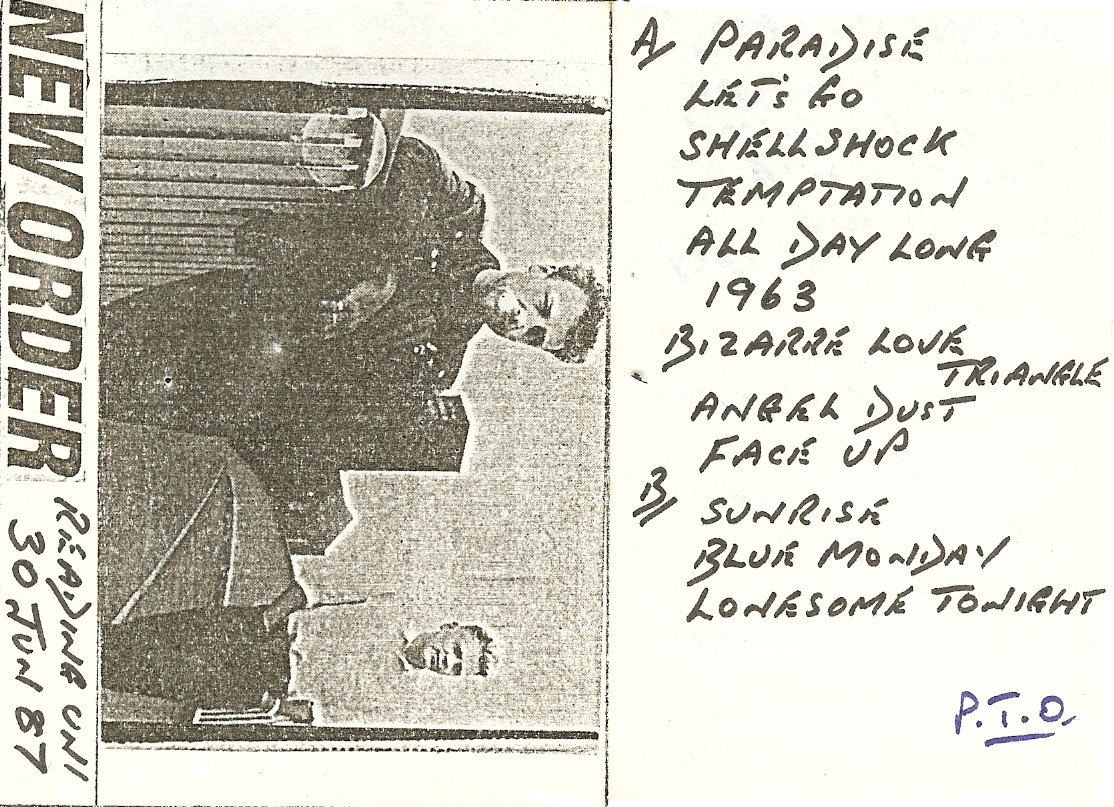 NEW ORDER
READING UNI
30 JUN 87
A/ PARADISE
LET'S GO
SHELLSHOCK
TEMPTATION
ALL DAY LONG
1963
BIZARRE LOVE
TRIANGLE
ANGEL DUST
FACE UP
B/ SUNRISE
BLUE MONDAY
LONESOME TONIGHT
P.T.O.